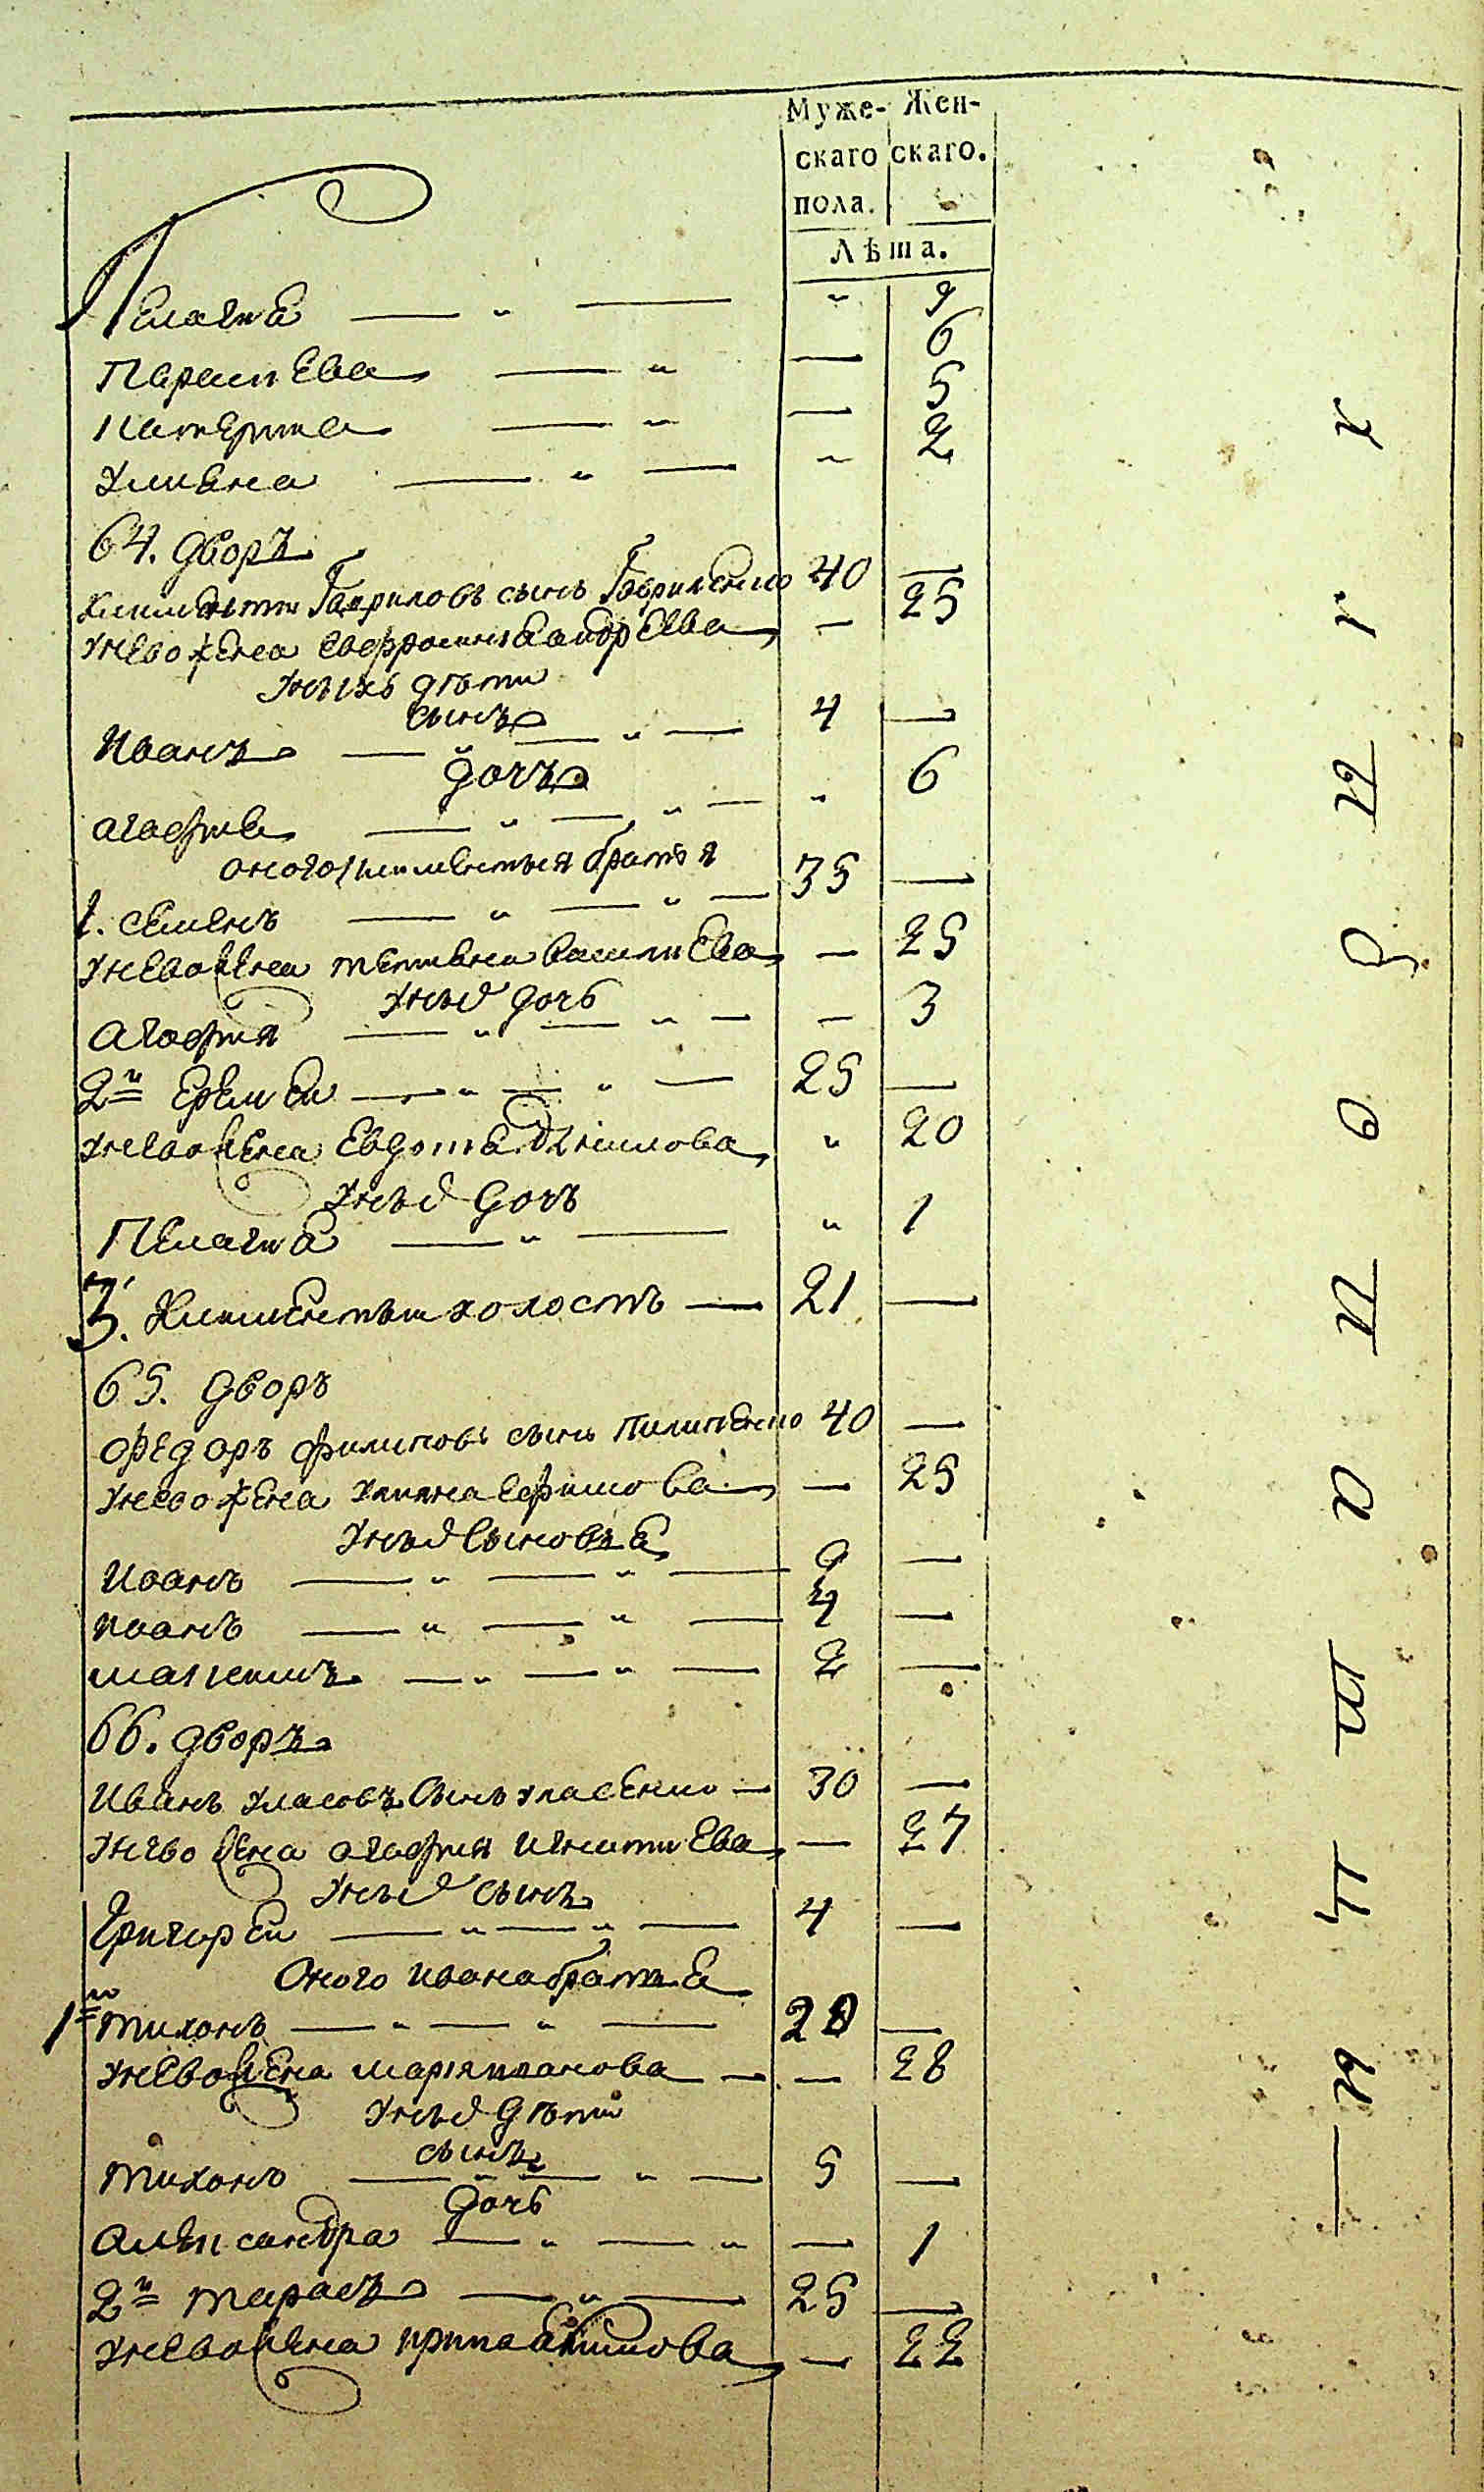 Муже- Жен-
скаго скаго.
пола.
Лѣта.
Пелагиа — " — " 9
Парасскева — " — 6
Катерина — " — 5
Улиана — " — " 2
64. дворъ
Климентъи Гавриловъ сынъ Гавриленко 40 —
Унево жена Евфросиниа андреева — 25
Унъихъ дѣти
сынъ
Иванъ — " — " — 4 —
дочъ
агафиа — " — " — " 6
оного Климентъия братъя
1. семенъ — " — " — 35 —
Унево жена тетиана василиева — 25
Унъй дочь
агафия — " — " — — 3
2й еремеи — " — " — 25 —
Унево жена Евдокиа данилова " 20
Унъй дочъ
Пелагиа — " — " 1
3. Климентъи холостъ — 21 —
65. дворъ
Федоръ филиповъ сынъ Пилипенко 40 —
Унево жена Улияна ефимова — 25
Унъй сыновъа
Иванъ — " — " — 9 —
иванъ — " — " — 4 —
максимъ — " — " — 2 —
66. дворъ
Иванъ Уласовъ сынъ Уласенко — 30 —
Унево жена агафия игнатиева — 27
Унъй сынъ
Григореи — " — " — 4 —
Оного ивана братъа
1й тихонъ — " — " — 28 —
Унево жена мария иванова — — 28
Унъй дѣти
сынъ
тихонъ — " — " — 5 —
дочь
Александра — " — " — 1
2й тарасъ — " — 25 —
Унево жена ирина акимова — 22